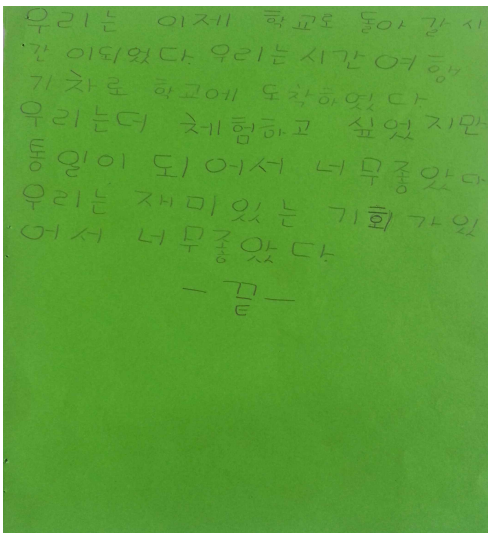 우리는 이제 학교로 돌아 갈 시
간 이되었다. 우리는 시간 여행
기차로 학교에 도착하였다
우리는더 체험하고 싶었지만
통일이 되어서 너무좋았다
우리는 재미있는 기회가있
어서 너무좋았다.
- 끝 -